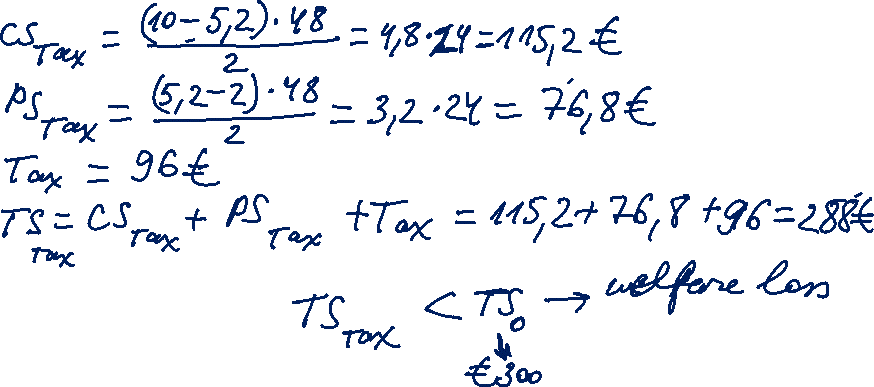 CS_Tax = (10-5,2)·48 / 2 = 4,8·24 = 115,2 €
PS_Tax = (5,2-2)·48 / 2 = 3,2·24 = 76,8 €
Tax = 96 €
TS_Tax = CS_Tax + PS_Tax + Tax = 115,2 + 76,8 + 96 = 288 €
TS_Tax < TS_0 → welfare loss
↓
€300